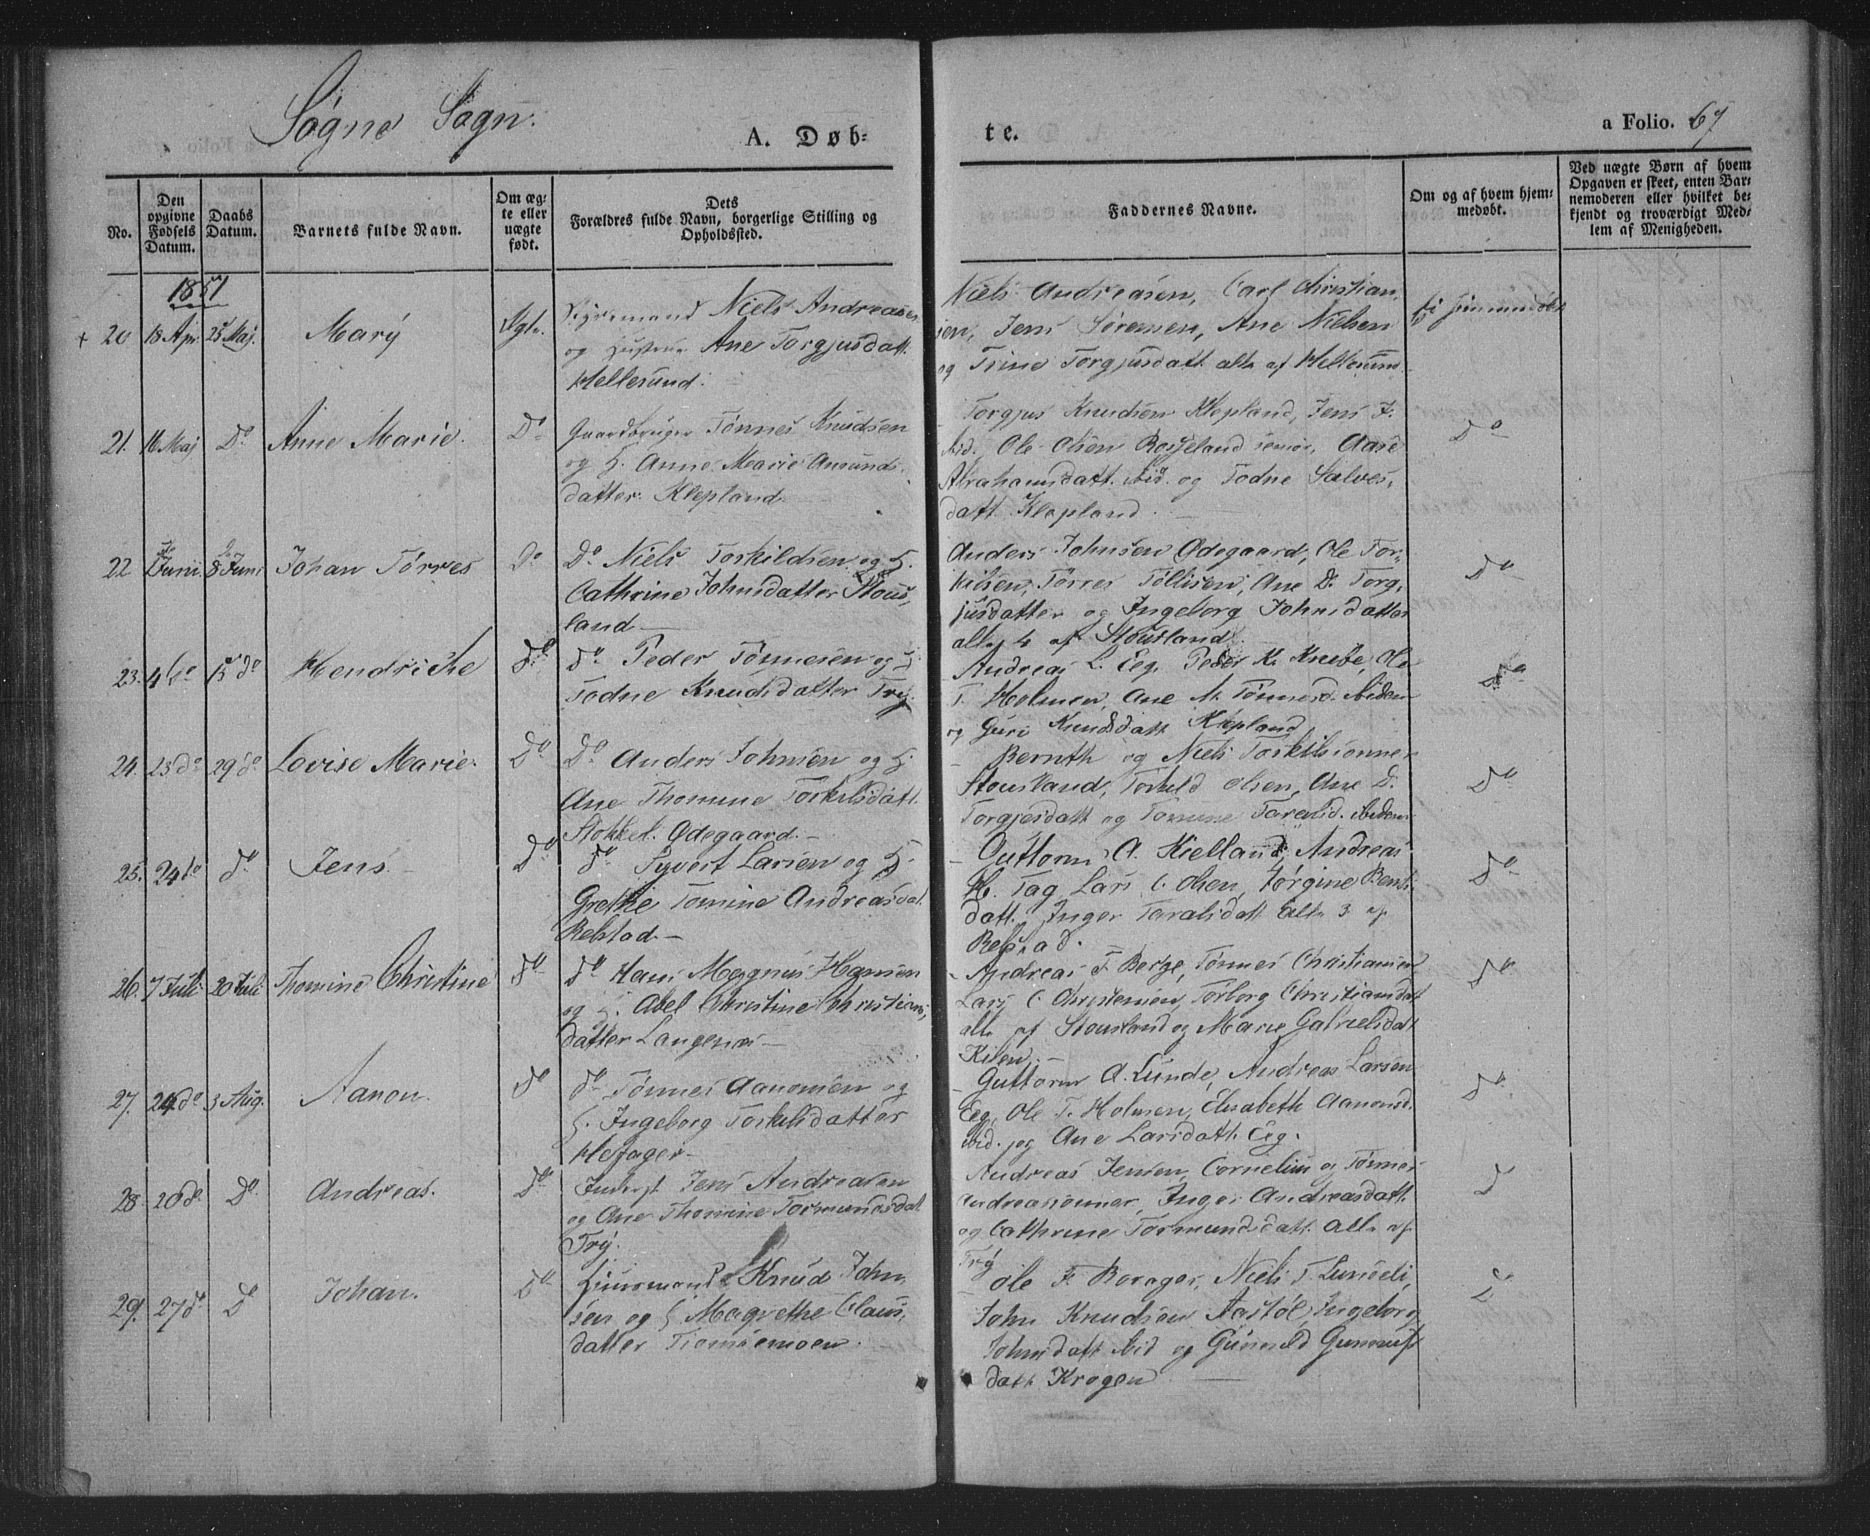 Søgne Sogn.
A. Døb-
te.
a Folio. 67
No.
Den opgivne Fødsels Datum.
Daabs Datum.
Barnets fulde Navn.
Om ægte eller uægte født.
Dets
Forældres fulde Navn, borgerlige Stilling og
Opholdssted.
Faddernes Navne.
Om og af hvem hjem-
medøbt.
Ved uægte Børn af hvem
Opgaven er skeet, enten Bar-
nemoderen eller hvilket be-
kjendt og troværdigt Med-
lem af Menigheden.
1851
+ 20 18 Apr. 25 Maj. Marÿ Ægte.
Niels Andreasen
og Hustrue Ane Torgjusdatt.
Hellesund.
Niels Andreasen, Carl Christian-
sen, Jens Sørensen, Ane Nielsen
og Trine Torgjusdatt. alle af Hellesund
ei hjemmedøbt
21. 16 Maj Do Anne Marie. Do
Gaardbruger Tønnes Knudsen
og H. Anne Marie Amunds-
datter Klepland.
Torgjus Knudsen Klepland, Jens J.
ibid. Ole Olsen Rosseland senior, Aase
Abrahamsdatt. ibid. og Todne Salves-
datt. Klepland.
Do
22 Juni 8 Juni Johan Tørres Do
Do Niels Torkildsen og H.
Cathrine Johnsdatter Stous-
land
Anders Johnsen Ødegaard, Ole Tor-
kilsen, Tørres Tollisen, Ane D. Torg-
jusdatter og Ingeborg Johnsdatter
alle 4 af Stousland.
Do
23. 4 do 15 do Hendriche Do
Do Peder Tønnesen og H.
Todne Knudsdatter Trÿ.
Andreas L. Eeg, Peder K. Knebe, Ole
T. Holmen, Ane M. Tønnesd. ibidem
og Guri Knudsdatt. Klepland
Do
24. 23 do 29 do Lovise Marie. Do
Do Anders Johnsen og H.
Ane Thomine Torkilsdatt.
Stokkel. Ødegaard.
Bernth og Niels Torkilsønner
Stousland, Torkild Olsen, Ane D.
Torgjusdatt. og Tomine Taralsd. ibidem
Do
25. 24 do Do Jens Do
Do Syvert Larsen og H.
Grethe Tomine Andreasdat.
Refstad.
Guttorm A. Kielland, Andreas
H. Tag, Lars C. Olsen, Jørgine Bents-
datt., Inger Taralsdatt. alle 3 af
Refstad.
Do
26. 7 Juli 20 Juli Thomine Christine Do
Do Hans Magnus Hansen
og H. Abel Christine Christians-
datter Langenes
Andreas F. Berge, Tønnes Christiansen
Lars C. Christensen, Torborg Christiansdat
alle af Stousland og Marie Gabrielsdat
Kilen.
Do
27. 24 do 3 Aug. Aanon. Do
Do Tønnes Aanonsen og
H. Ingeborg Torkelsdatter
Guttorm A. Lunde, Andreas Larsen
Eeg, Ole T. Holmen, Elisabeth Aanonsd.
ibid. og Ane Larsdatt. Eeg.
Do
28. 26 do. Do Andreas. Do
Inderst Jens Andreasen
og Ane Thomine Tormundsdat
Trÿ.
Andreas Jensen, Cornelius og Tønnes
Andreassønner, Inger Andreasdatt.
og Cathrine Tormundsdatt. alle af
Trÿ
29. 27 do Do Johan. Do
Huusmand Knud John-
sen og H. Magrethe Claus-
datter
Ole F. Borager, Niels T.
John Knudsen Aastøl, Ingeborg
Johnsdatt. ibid og
datt. Krogen